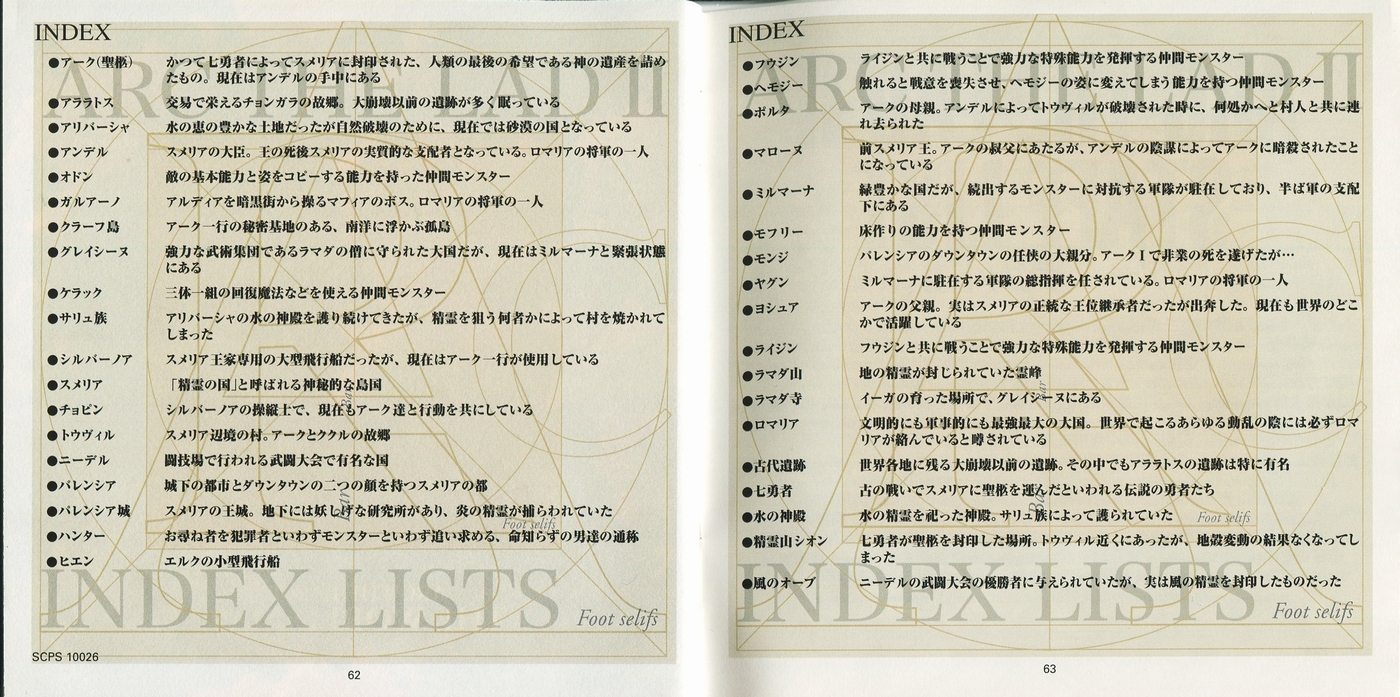 INDEX
●アーク(聖柩) かつて七勇者によってスメリアに封印された、人類の最後の希望である神の遺産を詰め
たもの。現在はアンデルの手中にある
●アララトス 交易で栄えるチョンガラの故郷。大崩壊以前の遺跡が多く眠っている
●アリバーシャ 水の恵の豊かな土地だったが自然破壊のために、現在では砂漠の国となっている
●アンデル スメリアの大臣。王の死後スメリアの実質的な支配者となっている。ロマリアの将軍の一人
●オドン 敵の基本能力と姿をコピーする能力を持った仲間モンスター
●ガルアーノ アルディアを暗黒街から操るマフィアのボス。ロマリアの将軍の一人
●クラーフ島 アーク一行の秘密基地のある、南洋に浮かぶ孤島
●グレイシーヌ 強力な武術集団であるラマダの僧に守られた大国だが、現在はミルマーナと緊張状態
にある
●ケラック 三体一組の回復魔法などを使える仲間モンスター
●サリュ族 アリバーシャの水の神殿を護り続けてきたが、精霊を狙う何者かによって村を焼かれて
しまった
●シルバーノア スメリア王家専用の大型飛行船だったが、現在はアーク一行が使用している
●スメリア 「精霊の国」と呼ばれる神秘的な島国
●チョピン シルバーノアの操縦士で、現在もアーク達と行動を共にしている
●トウヴィル スメリア辺境の村。アークとククルの故郷
●ニーデル 闘技場で行われる武闘大会で有名な国
●パレンシア 城下の都市とダウンタウンの二つの顔を持つスメリアの都
●パレンシア城 スメリアの王城。地下には妖しげな研究所があり、炎の精霊が捕らわれていた
●ハンター お尋ね者を犯罪者といわずモンスターといわず追い求める、命知らずの男達の通称
●ヒエン エルクの小型飛行船
ARC THE LAD II
Bar
Bar
Foot selifs
INDEX LISTS
Foot selifs
SCPS 10026
62
INDEX
●フウジン ライジンと共に戦うことで強力な特殊能力を発揮する仲間モンスター
●ヘモジー 触れると戦意を喪失させ、ヘモジーの姿に変えてしまう能力を持つ仲間モンスター
●ポルタ アークの母親。アンデルによってトウヴィルが破壊された時に、何処かへと村人と共に連
れ去られた
●マローヌ 前スメリア王。アークの叔父にあたるが、アンデルの陰謀によってアークに暗殺されたこと
になっている
●ミルマーナ 緑豊かな国だが、続出するモンスターに対抗する軍隊が駐在しており、半ば軍の支配
下にある
●モフリー 床作りの能力を持つ仲間モンスター
●モンジ パレンシアのダウンタウンの任侠の大親分。アークⅠで非業の死を遂げたが…
●ヤグン ミルマーナに駐在する軍隊の総指揮を任されている。ロマリアの将軍の一人
●ヨシュア アークの父親。実はスメリアの正統な王位継承者だったが出奔した。現在も世界のどこ
かで活躍している
●ライジン フウジンと共に戦うことで強力な特殊能力を発揮する仲間モンスター
●ラマダ山 地の精霊が封じられていた霊峰
●ラマダ寺 イーガの育った場所で、グレイシーヌにある
●ロマリア 文明的にも軍事的にも最強最大の大国。世界で起こるあらゆる動乱の陰には必ずロマ
リアが絡んでいると噂されている
●古代遺跡 世界各地に残る大崩壊以前の遺跡。その中でもアララトスの遺跡は特に有名
●七勇者 古の戦いでスメリアに聖柩を運んだといわれる伝説の勇者たち
●水の神殿 水の精霊を祀った神殿。サリュ族によって護られていた
●精霊山シオン 七勇者が聖柩を封印した場所。トウヴィル近くにあったが、地殻変動の結果なくなってし
まった
●風のオーブ ニーデルの武闘大会の優勝者に与えられていたが、実は風の精霊を封印したものだった
ARC THE LAD II
Bar
Bar
Foot selifs
INDEX LISTS
Foot selifs
63